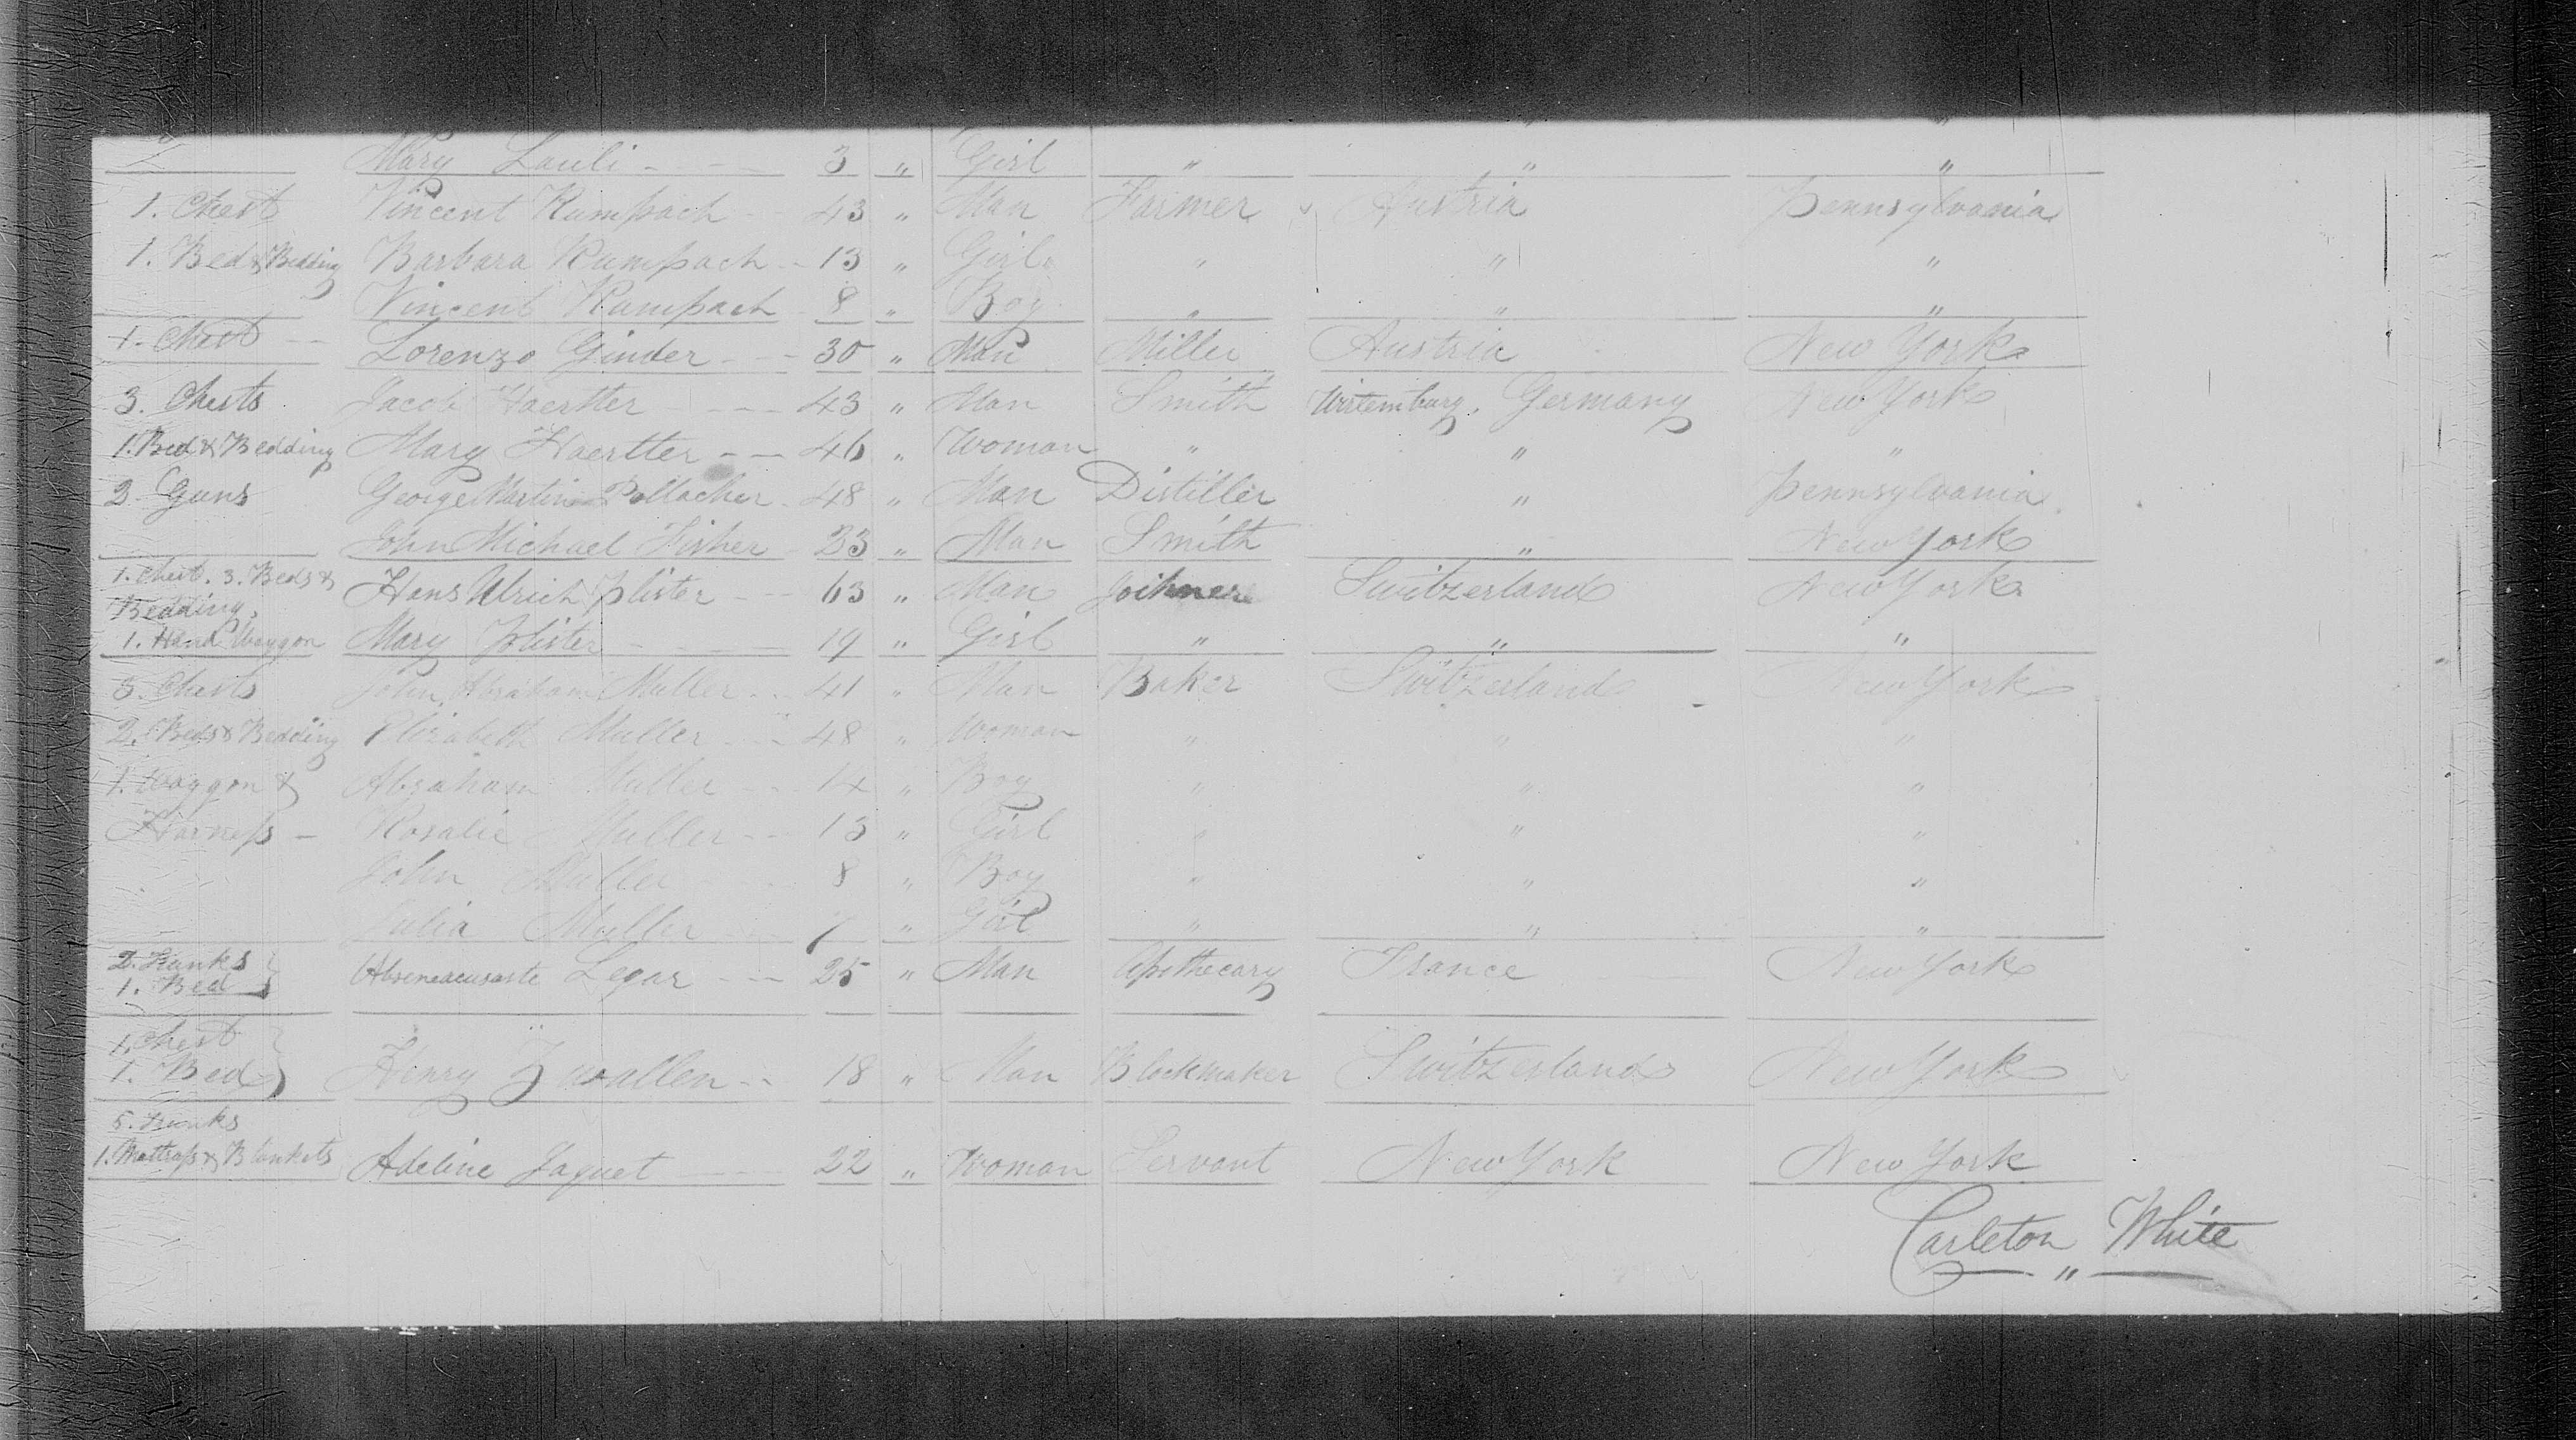 Mary Lauli - - - 3 " Girl " " "
1. Chest Vincent Rumpach - - 43 " Man Farmer Austria Pennsylvania
1. Bed & Bedding Barbara Rumpach - 13 " Girl " " "
Vincent Rumpach 8 " Boy " " "
1. Chest - - Lorenzo Ginder - - - 30 " Man Miller Austria New York
3. Chests Jacob Haertter - - 43 " Man Smith Wirtemburg, Germany New York
1. Bed & Bedding Mary Haertter - - - 46 " Woman " " "
2 Guns George Martin Pollacher - 48 " Man Distiller " Pennsylvania
John Michael Fisher - 33 " Man Smith " New York
1. Chest. 3. Beds & Hans Ulrich Plister - - - 63 " Man Joihner Switzerland New York
Bedding,
1. Hand Waggon Mary Plister - - - 19 " Girl " " "
3. Chests John Abraham Muller - - 41 " Man Baker Switzerland New York
2. Beds & Bedding Elizabeth Muller - - - 48 " Woman " " "
1. Waggon & Abraham Muller - - 14 " Boy " " "
Harness - Rosalie Muller - - 13 " Girl " " "
John Muller 8 " Boy " " "
Julia Muller - - 7 " Girl " " "
2. Trunks Legar - - - 25 " Man Apothecary France New York
1. Bed
1. Chest
1. Bed Henry Zwallen - - 18 " Man Blockmaker Switzerland New York
5. Trunks
1. Mattrass & Blankets Adeline Jaquet - - - 22 " Woman Servant New York New York
Carleton White
"